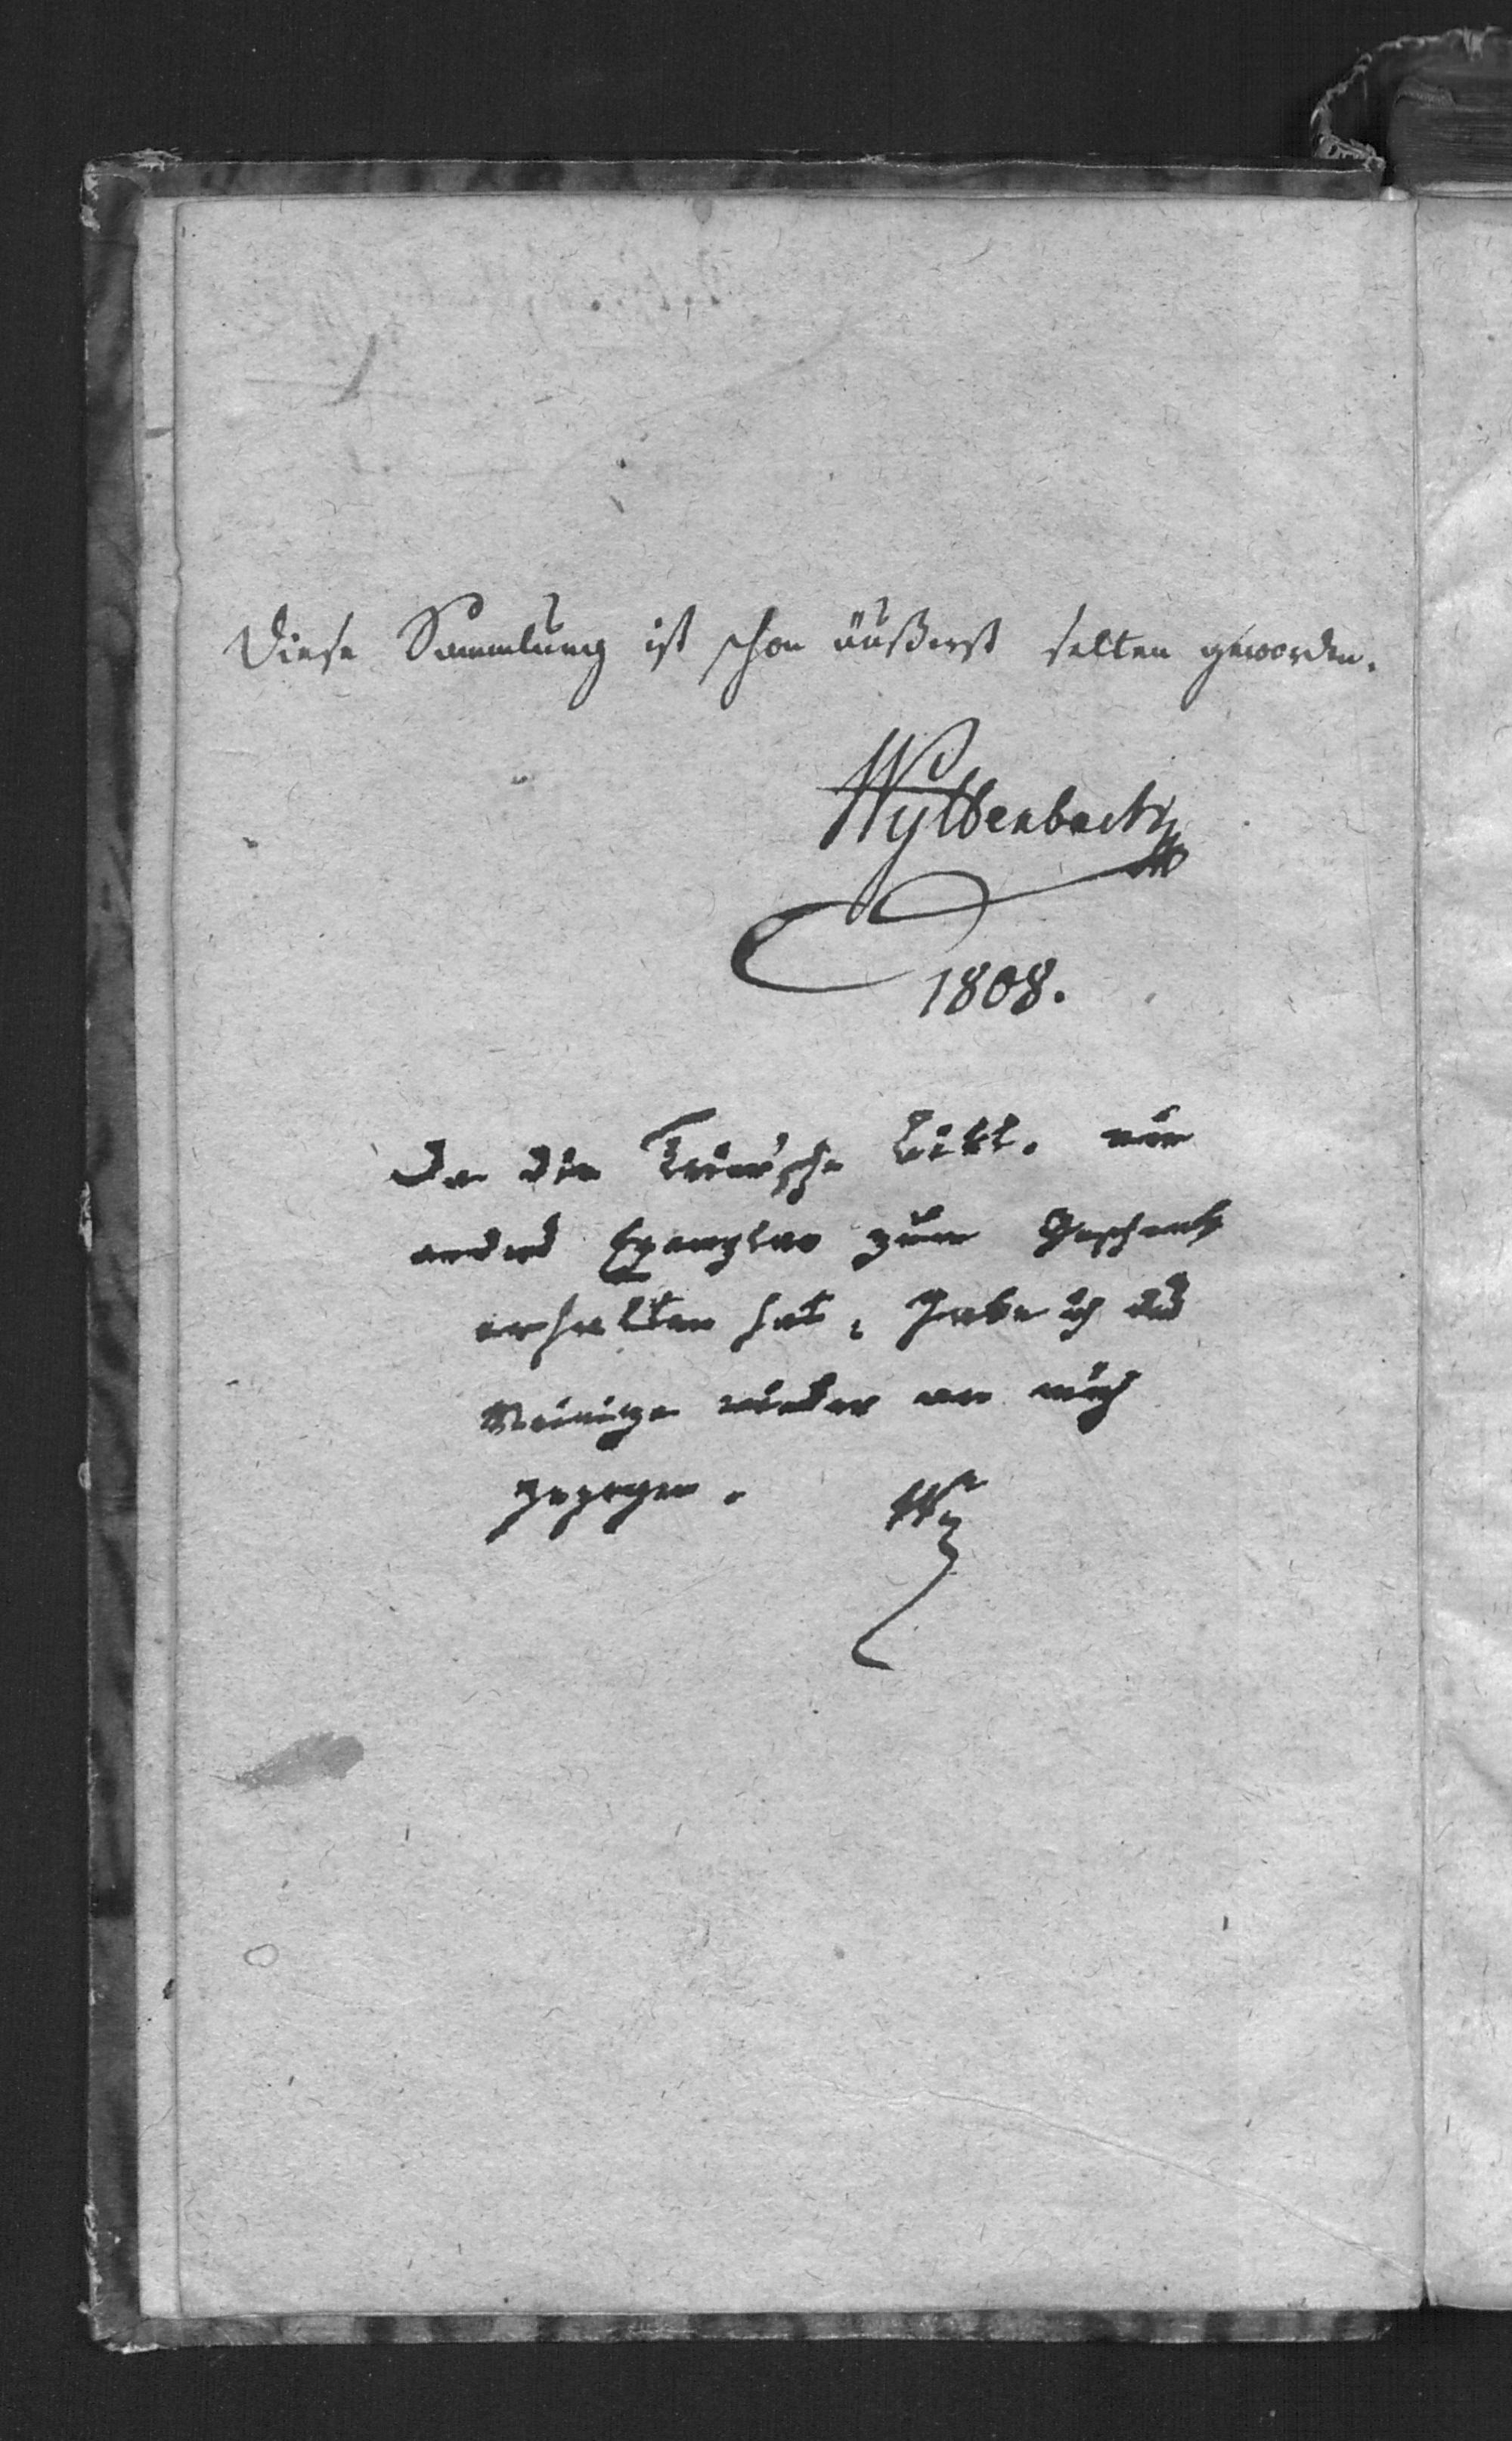 Diese Sammlung ist schon äußerst selten geworden.
Wyttenbach
1808.
Da die Trier'sche Bibl. ein
andres Exemplar zum Geschenk
erhalten hat, habe ich das
Meinige wieder an mich
gezogen.